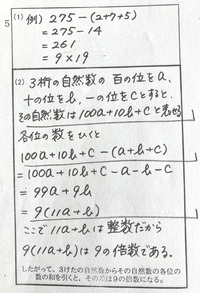 5
(1) 例) 275-(2+7+5)
= 275-14
= 261
= 9×19
(2) 3桁の自然数の百の位をa,
十の位をb, 一の位をCとすると,
その自然数は100a+10b+Cと表せる
各位の数をひくと
100a+10b+C-(a+b+C)
= 100a+10b+C-a-b-C
= 99a+9b
= 9(11a+b)
ここで11a+bは整数だから
9(11a+b)は9の倍数である.
したがって、3けたの自然数からその自然数の各位の
数の和を引くと、その差は9の倍数になる。